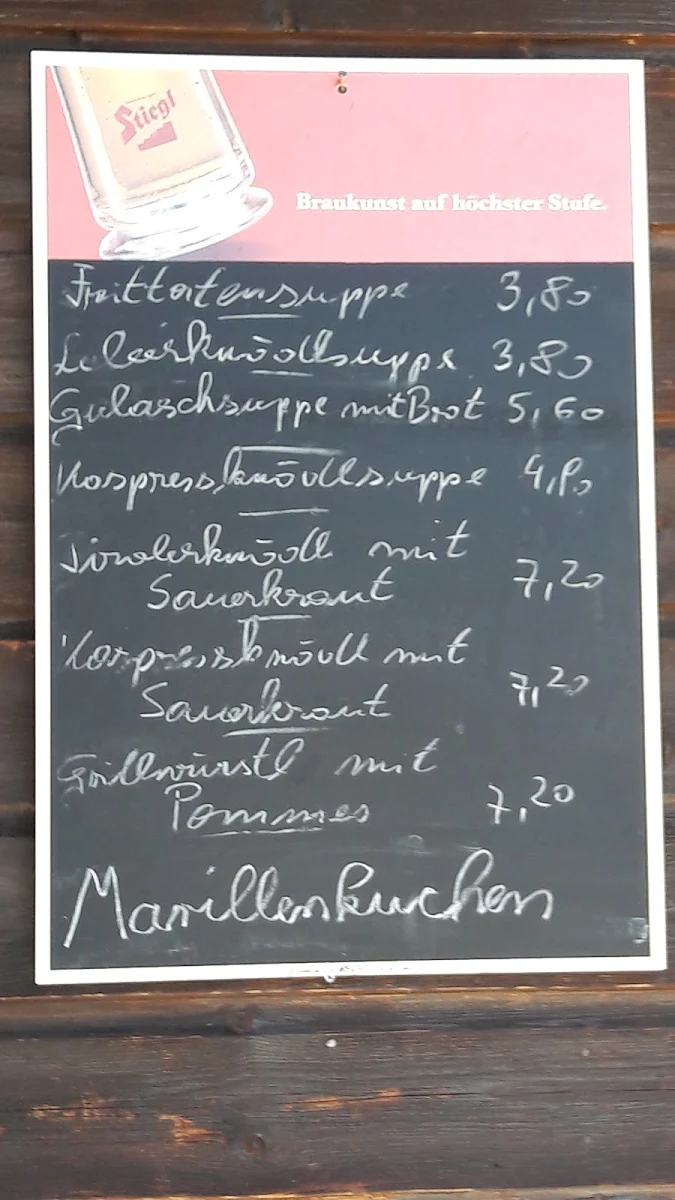 Stiegl
Braukunst auf höchster Stufe.
Frittatensuppe 3,80
Leberknödlsuppe 3,80
Gulaschsuppe mit Brot 5,60
Kaspressknödlsuppe 4,80
Tirolerknödl mit
Sauerkraut 7,20
Kaspressknödl mit
Sauerkraut 7,20
Grillwürstl mit
Pommes 7,20
Marillenkuchen